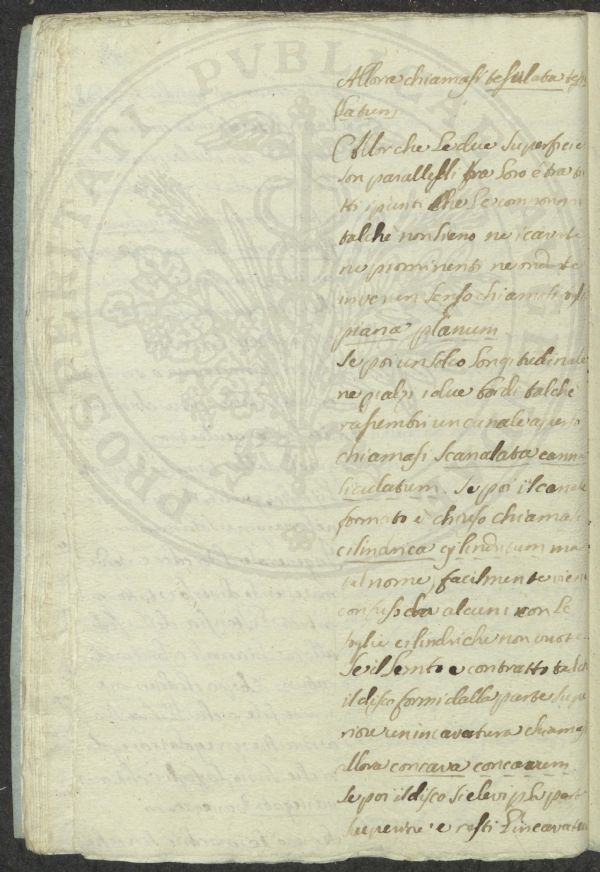 Allora chiamasi tesulata tes
latum,
Allorche le due superficie
son parallelli fra loro e tra tu
tti i punti che le compongon
talchè non sieno ne icavate
ne prominenti ne
in verun senso chiamasi
piana planum
Se poi un solco longitudinale
ne rialzi i due bordi talchè
rassembri un canale aperto
chiamasi scanalata canna
liculatum. Se poi il canale
formato è chiuso chiamasi
cilindrica cylindricum ma
tal nome, facilmente viene
confuso da alcuni con le
foglie cilindriche non vuote
Se il lembo e contratto talchè
il disco formi dalla parte supe
riore un incavatura chiamasi
allora concava concavum.
Se poi il disco si elevi p la part
superiore e resti l'incavatu
PROSPERITATI PVBLICAE